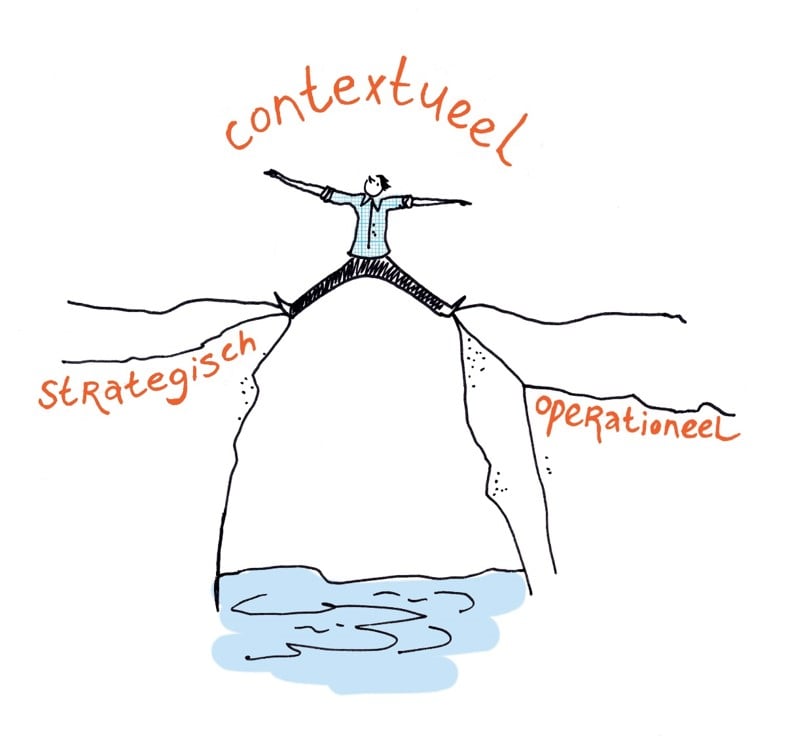 contextueel
strategisch
operationeel